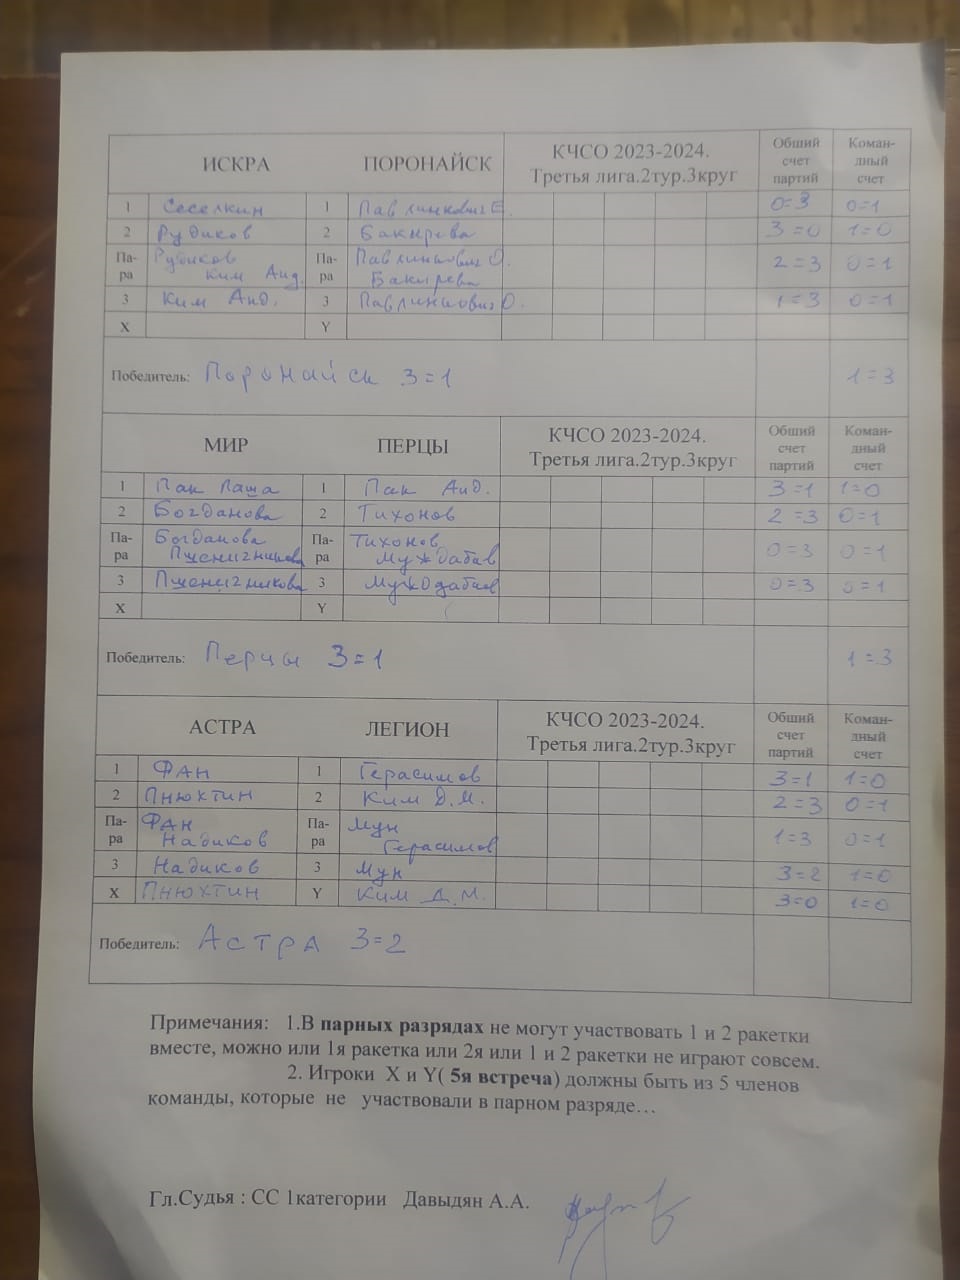 ИСКРА ПОРОНАЙСК КЧСО 2023-2024. Третья лига.2тур.3круг Общий счет партий Коман-дный счет
1 Сеселкин 1 Павлинкович Е. 0=3 0=1
2 Рудиков 2 Бакирева 3=0 1=0
Па-ра Рудиков Ким Анд. Па-ра Павлинкович О. Бакирева 2=3 0=1
3 Ким Анд. 3 Павлинкович О. 1=3 0=1
X Y
Победитель: Поронайск 3=1 1=3
МИР ПЕРЦЫ КЧСО 2023-2024. Третья лига.2тур.3круг Общий счет партий Коман-дный счет
1 Пак Паша 1 Пак Анд. 3=1 1=0
2 Богданова 2 Тихонов 2=3 0=1
Па-ра Богданова Пшеничникова Па-ра Тихонов 0=3 0=1
3 Пшеничникова 3 0=3 0=1
X Y
Победитель: Перцы 3=1 1=3
АСТРА ЛЕГИОН КЧСО 2023-2024. Третья лига.2тур.3круг Общий счет партий Коман-дный счет
1 ФАН 1 Герасимов 3=1 1=0
2 Пнюхтин 2 Ким Д.М. 2=3 0=1
Па-ра ФАН Надиков Па-ра Мун Герасимов 1=3 0=1
3 Надиков 3 Мун 3=2 1=0
X Пнюхтин Y Ким Д.М. 3=0 1=0
Победитель: АСТРА 3=2
Примечания: 1.В парных разрядах не могут участвовать 1 и 2 ракетки
вместе, можно или 1я ракетка или 2я или 1 и 2 ракетки не играют совсем.
2. Игроки X и Y( 5я встреча) должны быть из 5 членов
команды, которые не участвовали в парном разряде…
Гл.Судья : СС 1категории Давыдян А.А.